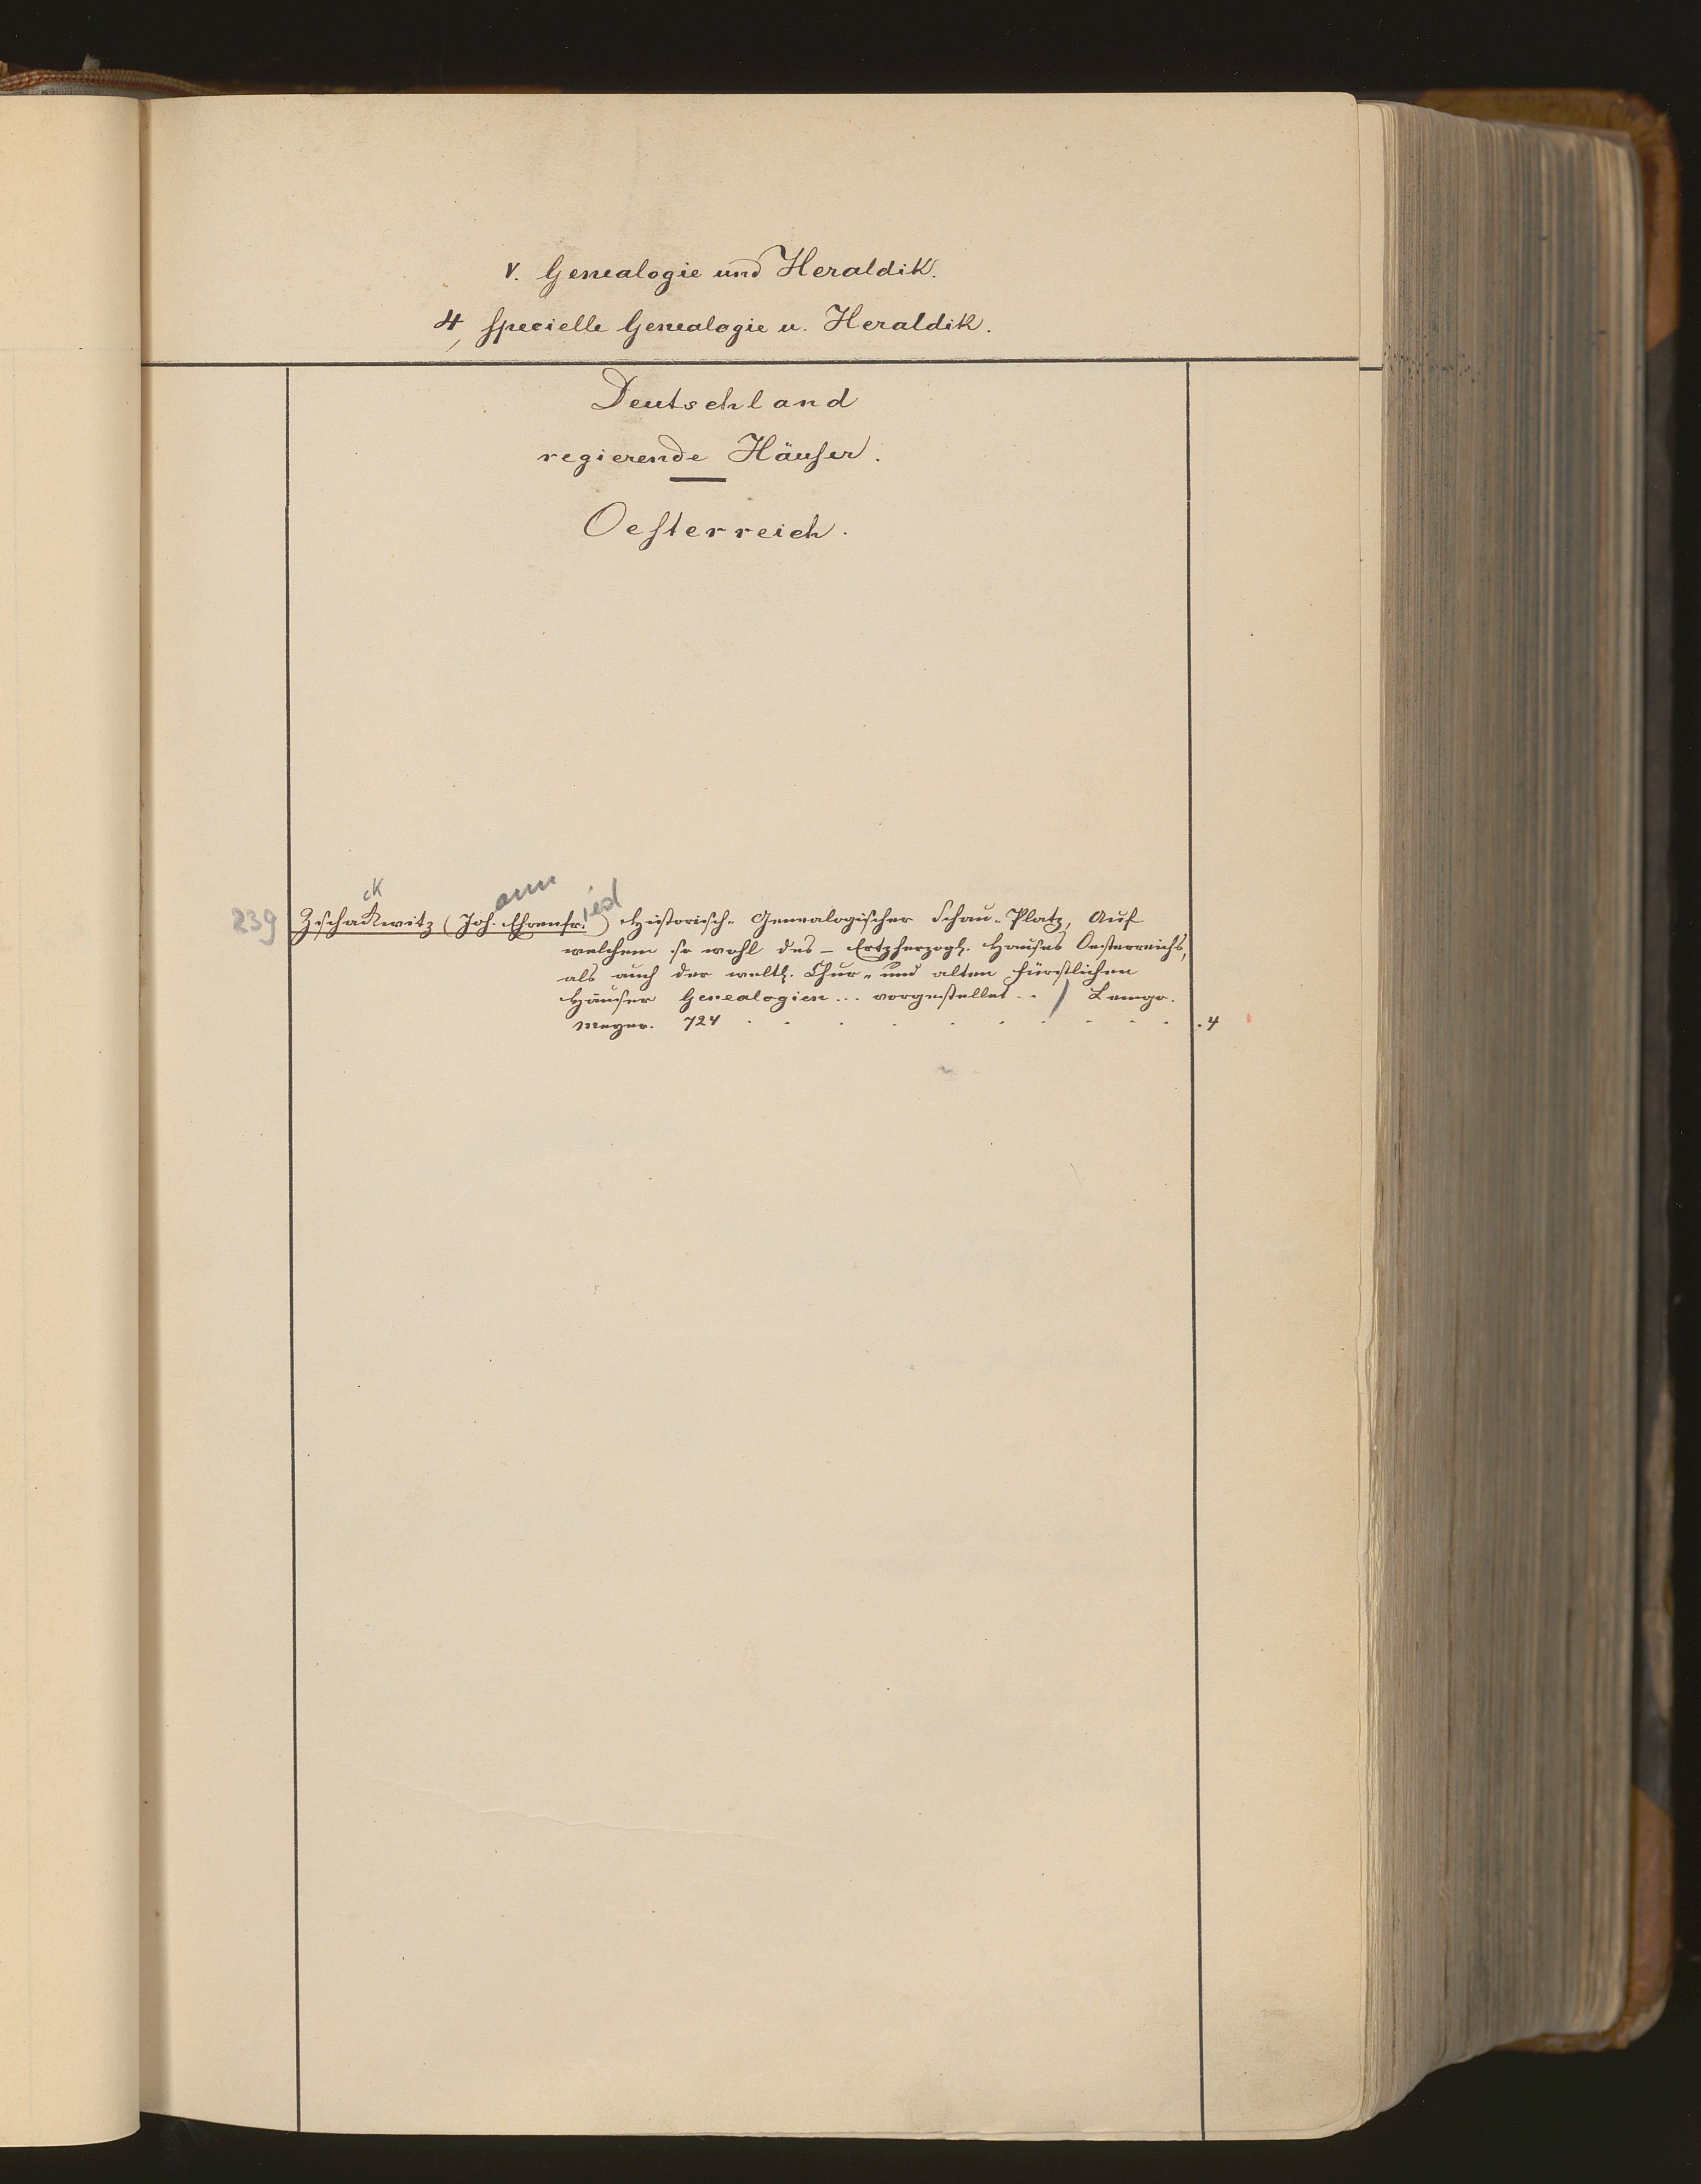 V. Genealogie und Heraldik.
4, specielle Genealogie u. Heraldik.
Deutschland
regierende Häuser.
Oesterreich.
ck ann ied
239 Zschackwitz (Joh. Ehrenfr.) Historisch-Genealogischer Schau-Platz, Auf
welchem so wohl des - Ertzherzogl. Hauses Oesterreichs,
als auch der weltl. Chur- und alten fürstlichen
Häuser Genealogien... vorgestellet.. / Lemgo.
Meyer. 724 . . . . . . . . . . . 4